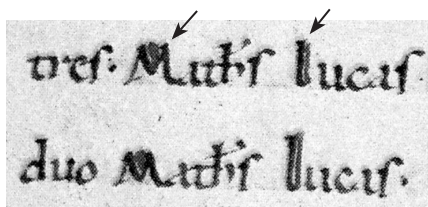 tres· Math's lucas
duo Math's lucas.